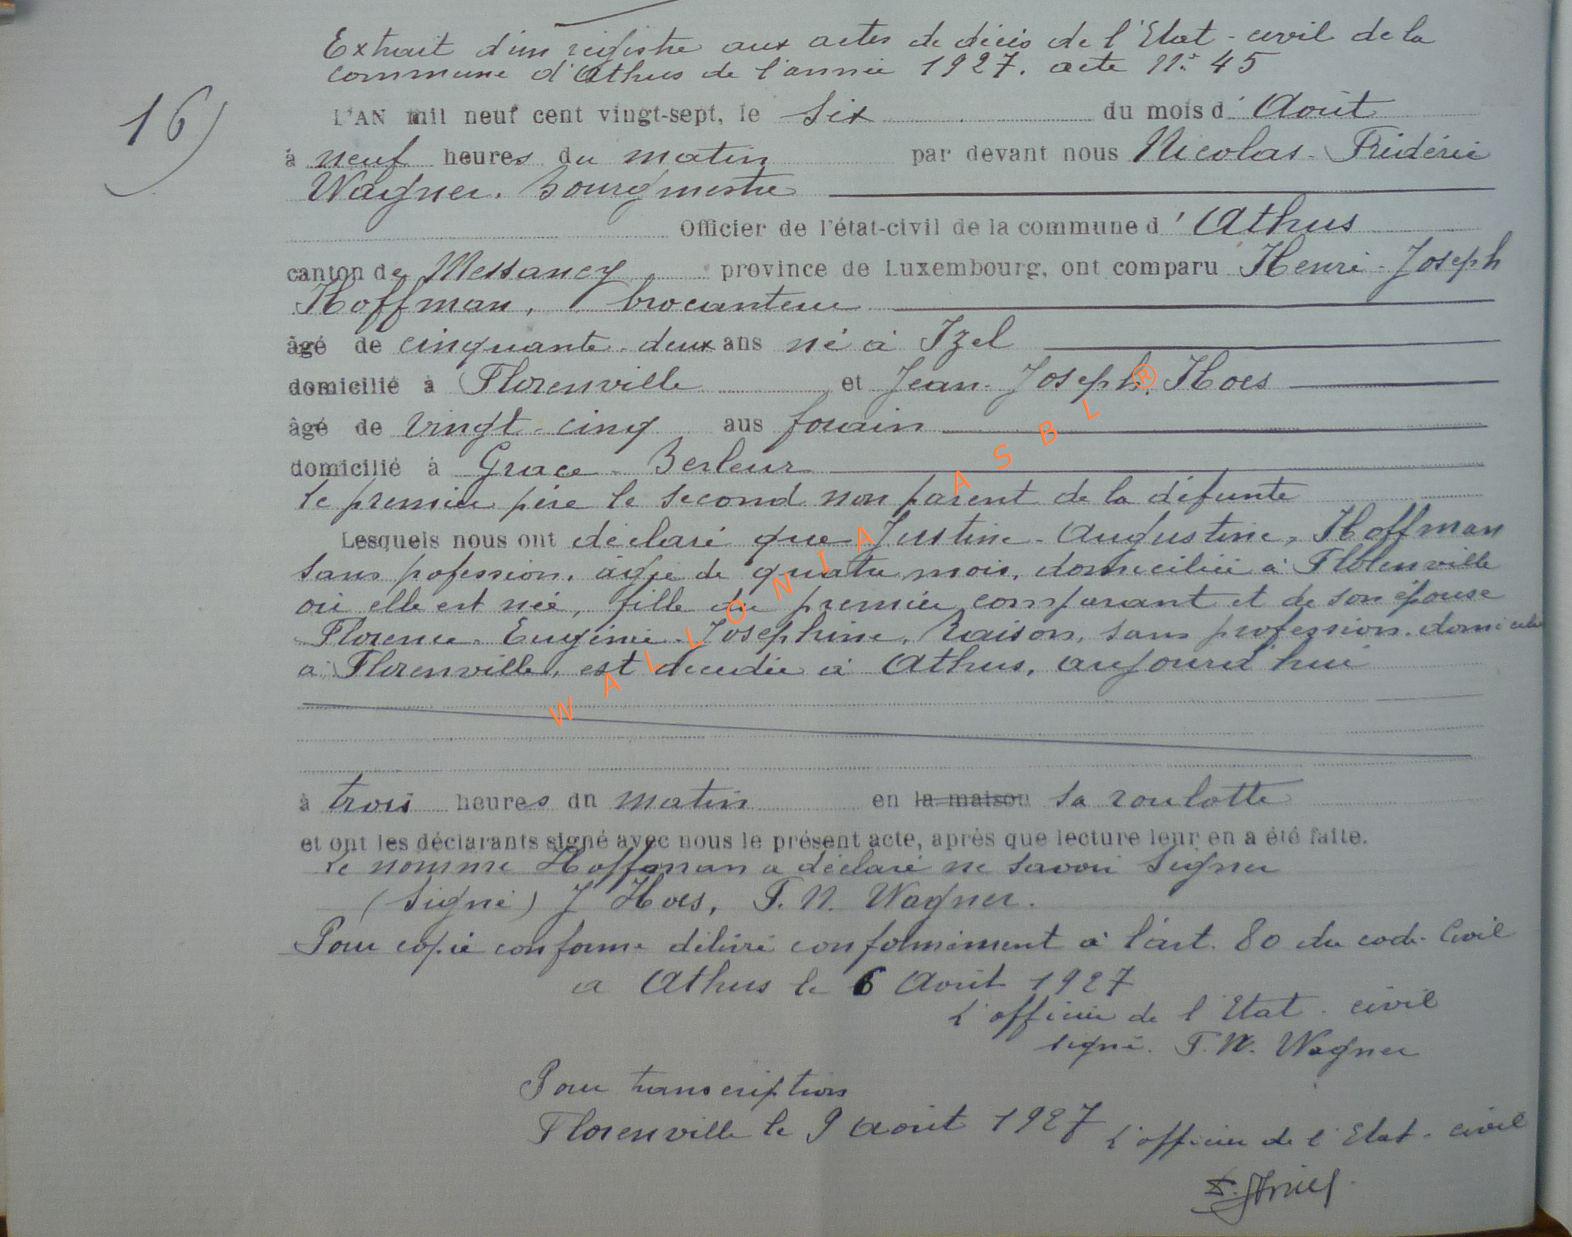 Extrait d'un registre aux actes de décès de l'Etat-civil de la
commune d'Athus de l'année 1927. acte N° 45
16)
L'AN mil neuf cent vingt-sept, le six du mois d' Août
à neuf heures du matin par devant nous Nicolas-Frédéric
Wagner, bourgmestre
Officier de l'état-civil de la commune d' Athus
canton de Messancy province de Luxembourg, ont comparu Henri-Joseph
Hoffman, brocanteur
âgé de cinquante-deux ans né à Izel
domicilié à Florenville et Jean-Joseph Hoes
âgé de vingt-cinq ans forain
domicilié à Grace-Berleur
le premier père le second non parent de la défunte
Lesquels nous ont déclaré que Justine-Augustine, Hoffman
sans profession, agée de quatre mois, domiciliée à Florenville
où elle est née, fille du premier comparant et de son épouse
Florence-Eugénie-Josephine, Raison, sans profession, domiciliée
à Florenville, est décédée à Athus, aujourd'hui
à trois heures du matin en la maison sa roulotte
et ont les déclarants signé avec nous le présent acte, après que lecture leur en a été faite.
Le nommé Hoffman a déclaré ne savoir signer
(Signé) J Hoes, F. N. Wagner.
Pour copie conforme délivré conformément à l'art. 80 du code Civil
a Athus le 6 Août 1927
L'officier de l'Etat-civil
signé. F. N. Wagner
Pour transcription
Florenville le 9 août 1927 L'officier de l'Etat-civil
WALLONIA ASBL ®